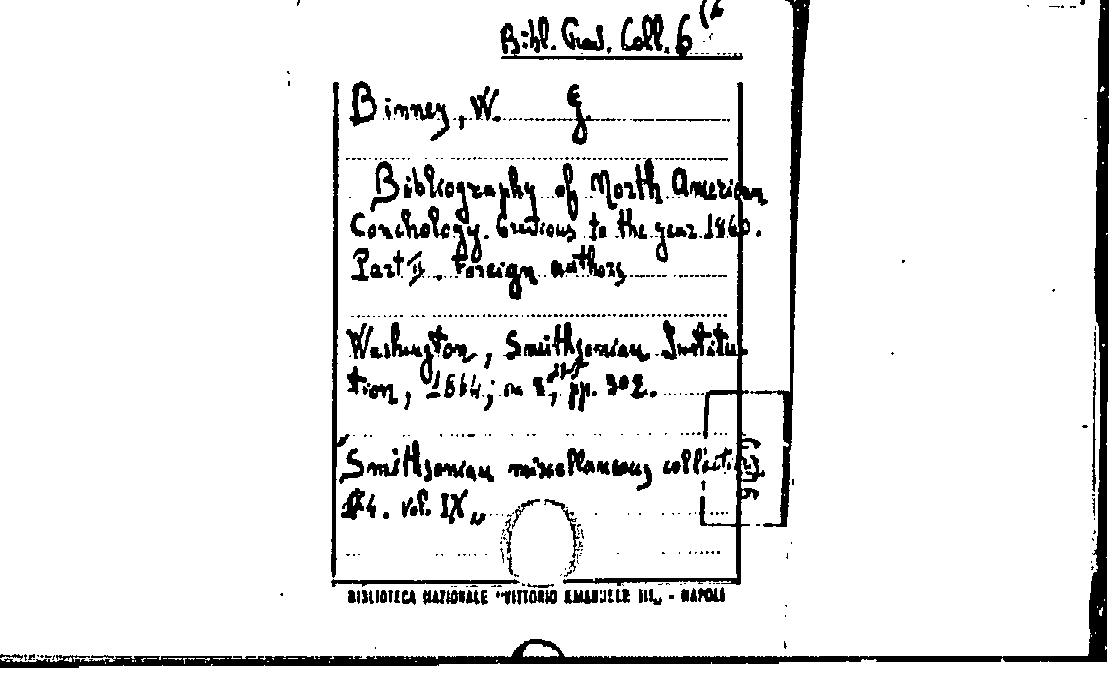 Bibl. Coll. 6 (6
Binney, W. G.
Bibliography of North American
Conchology. Previous to the year 1860.
Part II. Foreign authors
Washington, Smithsonian Institu
tion, 1864; in 8°, pp. 302.
Smithsonian miscellaneous collections
vol. IX„
BIBLIOTECA NAZIONALE "VITTORIO EMANUELE III„ - NAPOLI